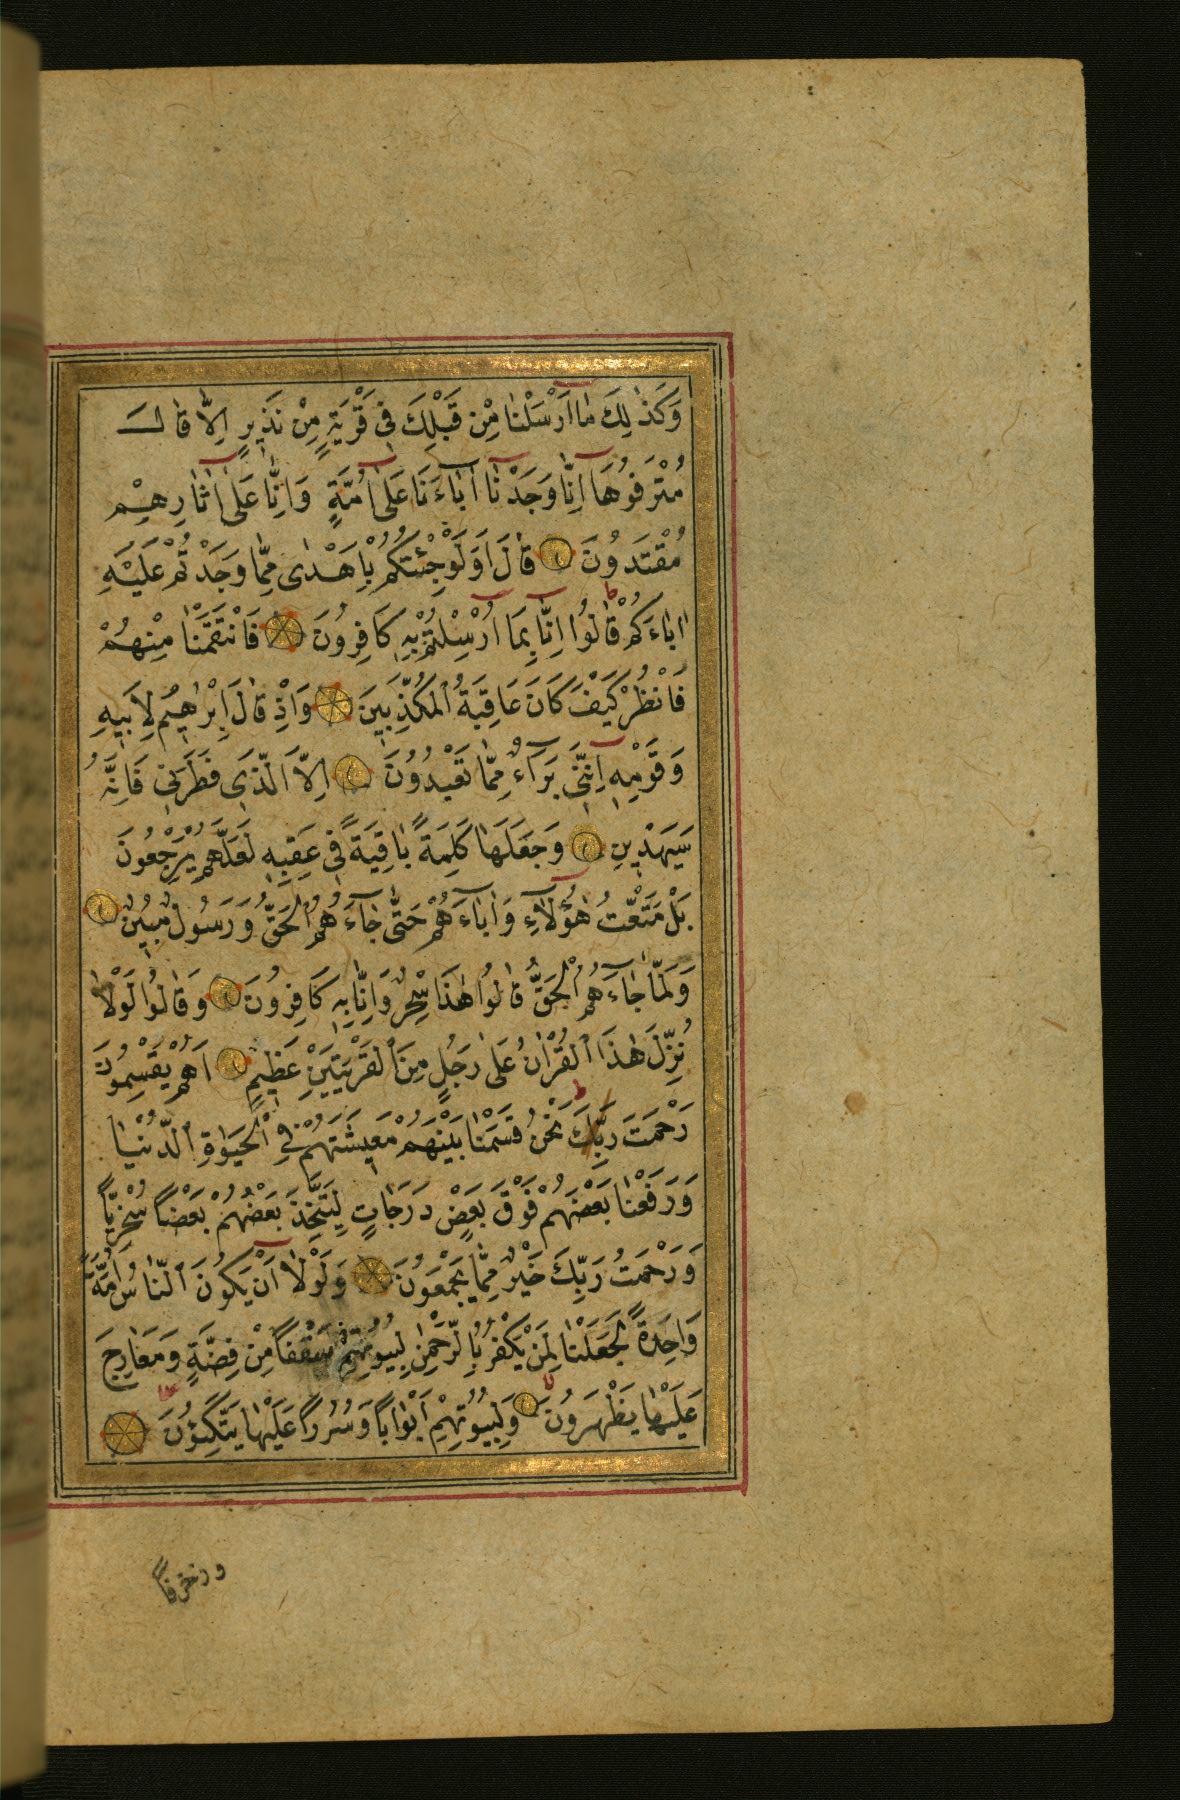 وَكَذٰلِكَ مٰا اَرْسَلْنٰا مِنْ قَبْلِكَ فِى قَرْيَةٍ مِنْ نَذِيرٍ اِلّٰا قٰالَ
مُتْرَفُوهَا اِنّٰا وَجَدْنٰا اٰبٰاءَنَا عَلىٰ اُمَّةٍ وَاِنّٰا عَلىٰ اٰثٰارِهِمْ
مُقْتَدُونَ قٰالَ اَوَلَوْ جِئْتُكُمْ بِاَهْدٰى مِمّٰا وَجَدْتُمْ عَلَيْهِ
اٰبٰاءَكُمْ قٰالُوا اِنّٰا بِمَا اُرْسِلْتُمْ بِهِ كَافِرُونَ فَانْتَقَمْنٰا مِنْهُمْ
فَانْظُرْ كَيْفَ كَانَ عَاقِبَةُ الْمُكَذِّبِينَ وَاِذْ قٰالَ اِبْرٰهِيمُ لِاَبِيهِ
وَقَوْمِهِ اِنَّنِى بَرَاءٌ مِمّٰا تَعْبُدُونَ اِلَّا الَّذِى فَطَرَنِى فَاِنَّهُ
سَيَهْدِينِ وَجَعَلَهٰا كَلِمَةً بٰاقِيَةً فِى عَقِبِهِ لَعَلَّهُمْ يَرْجِعُونَ
بَلْ مَتَّعْتُ هٰؤُلَاءِ وَاٰبٰاءَهُمْ حَتّٰى جٰاءَهُمُ الْحَقُّ وَرَسُولٌ مُبِينٌ
وَلَمّٰا جٰاءَهُمُ الْحَقُّ قٰالُوا هٰذَا سِحْرٌ وَاِنّٰا بِهِ كَافِرُونَ وَقٰالُوا لَوْلٰا
نُزِّلَ هٰذَا الْقُرْاٰنُ عَلىٰ رَجُلٍ مِنَ الْقَرْيَتَيْنِ عَظِيمٍ اَهُمْ يَقْسِمُونَ
رَحْمَتَ رَبِّكَ نَحْنُ قَسَمْنٰا بَيْنَهُمْ مَعِيشَتَهُمْ فِى الْحَيٰوةِ الدُّنْيٰا
وَرَفَعْنٰا بَعْضَهُمْ فَوْقَ بَعْضٍ دَرَجٰاتٍ لِيَتَّخِذَ بَعْضُهُمْ بَعْضًا سُخْرِيًّا
وَرَحْمَتُ رَبِّكَ خَيْرٌ مِمّٰا يَجْمَعُونَ وَلَوْلٰا اَنْ يَكُونَ النّٰاسُ اُمَّةً
وٰاحِدَةً لَجَعَلْنٰا لِمَنْ يَكْفُرُ بِالرَّحْمٰنِ لِبُيُوتِهِمْ سُقُفًا مِنْ فِضَّةٍ وَمَعٰارِجَ
عَلَيْهٰا يَظْهَرُونَ وَلِبُيُوتِهِمْ اَبْوٰابًا وَسُرُرًا عَلَيْهٰا يَتَّكِؤُنَ
وزخرفًا